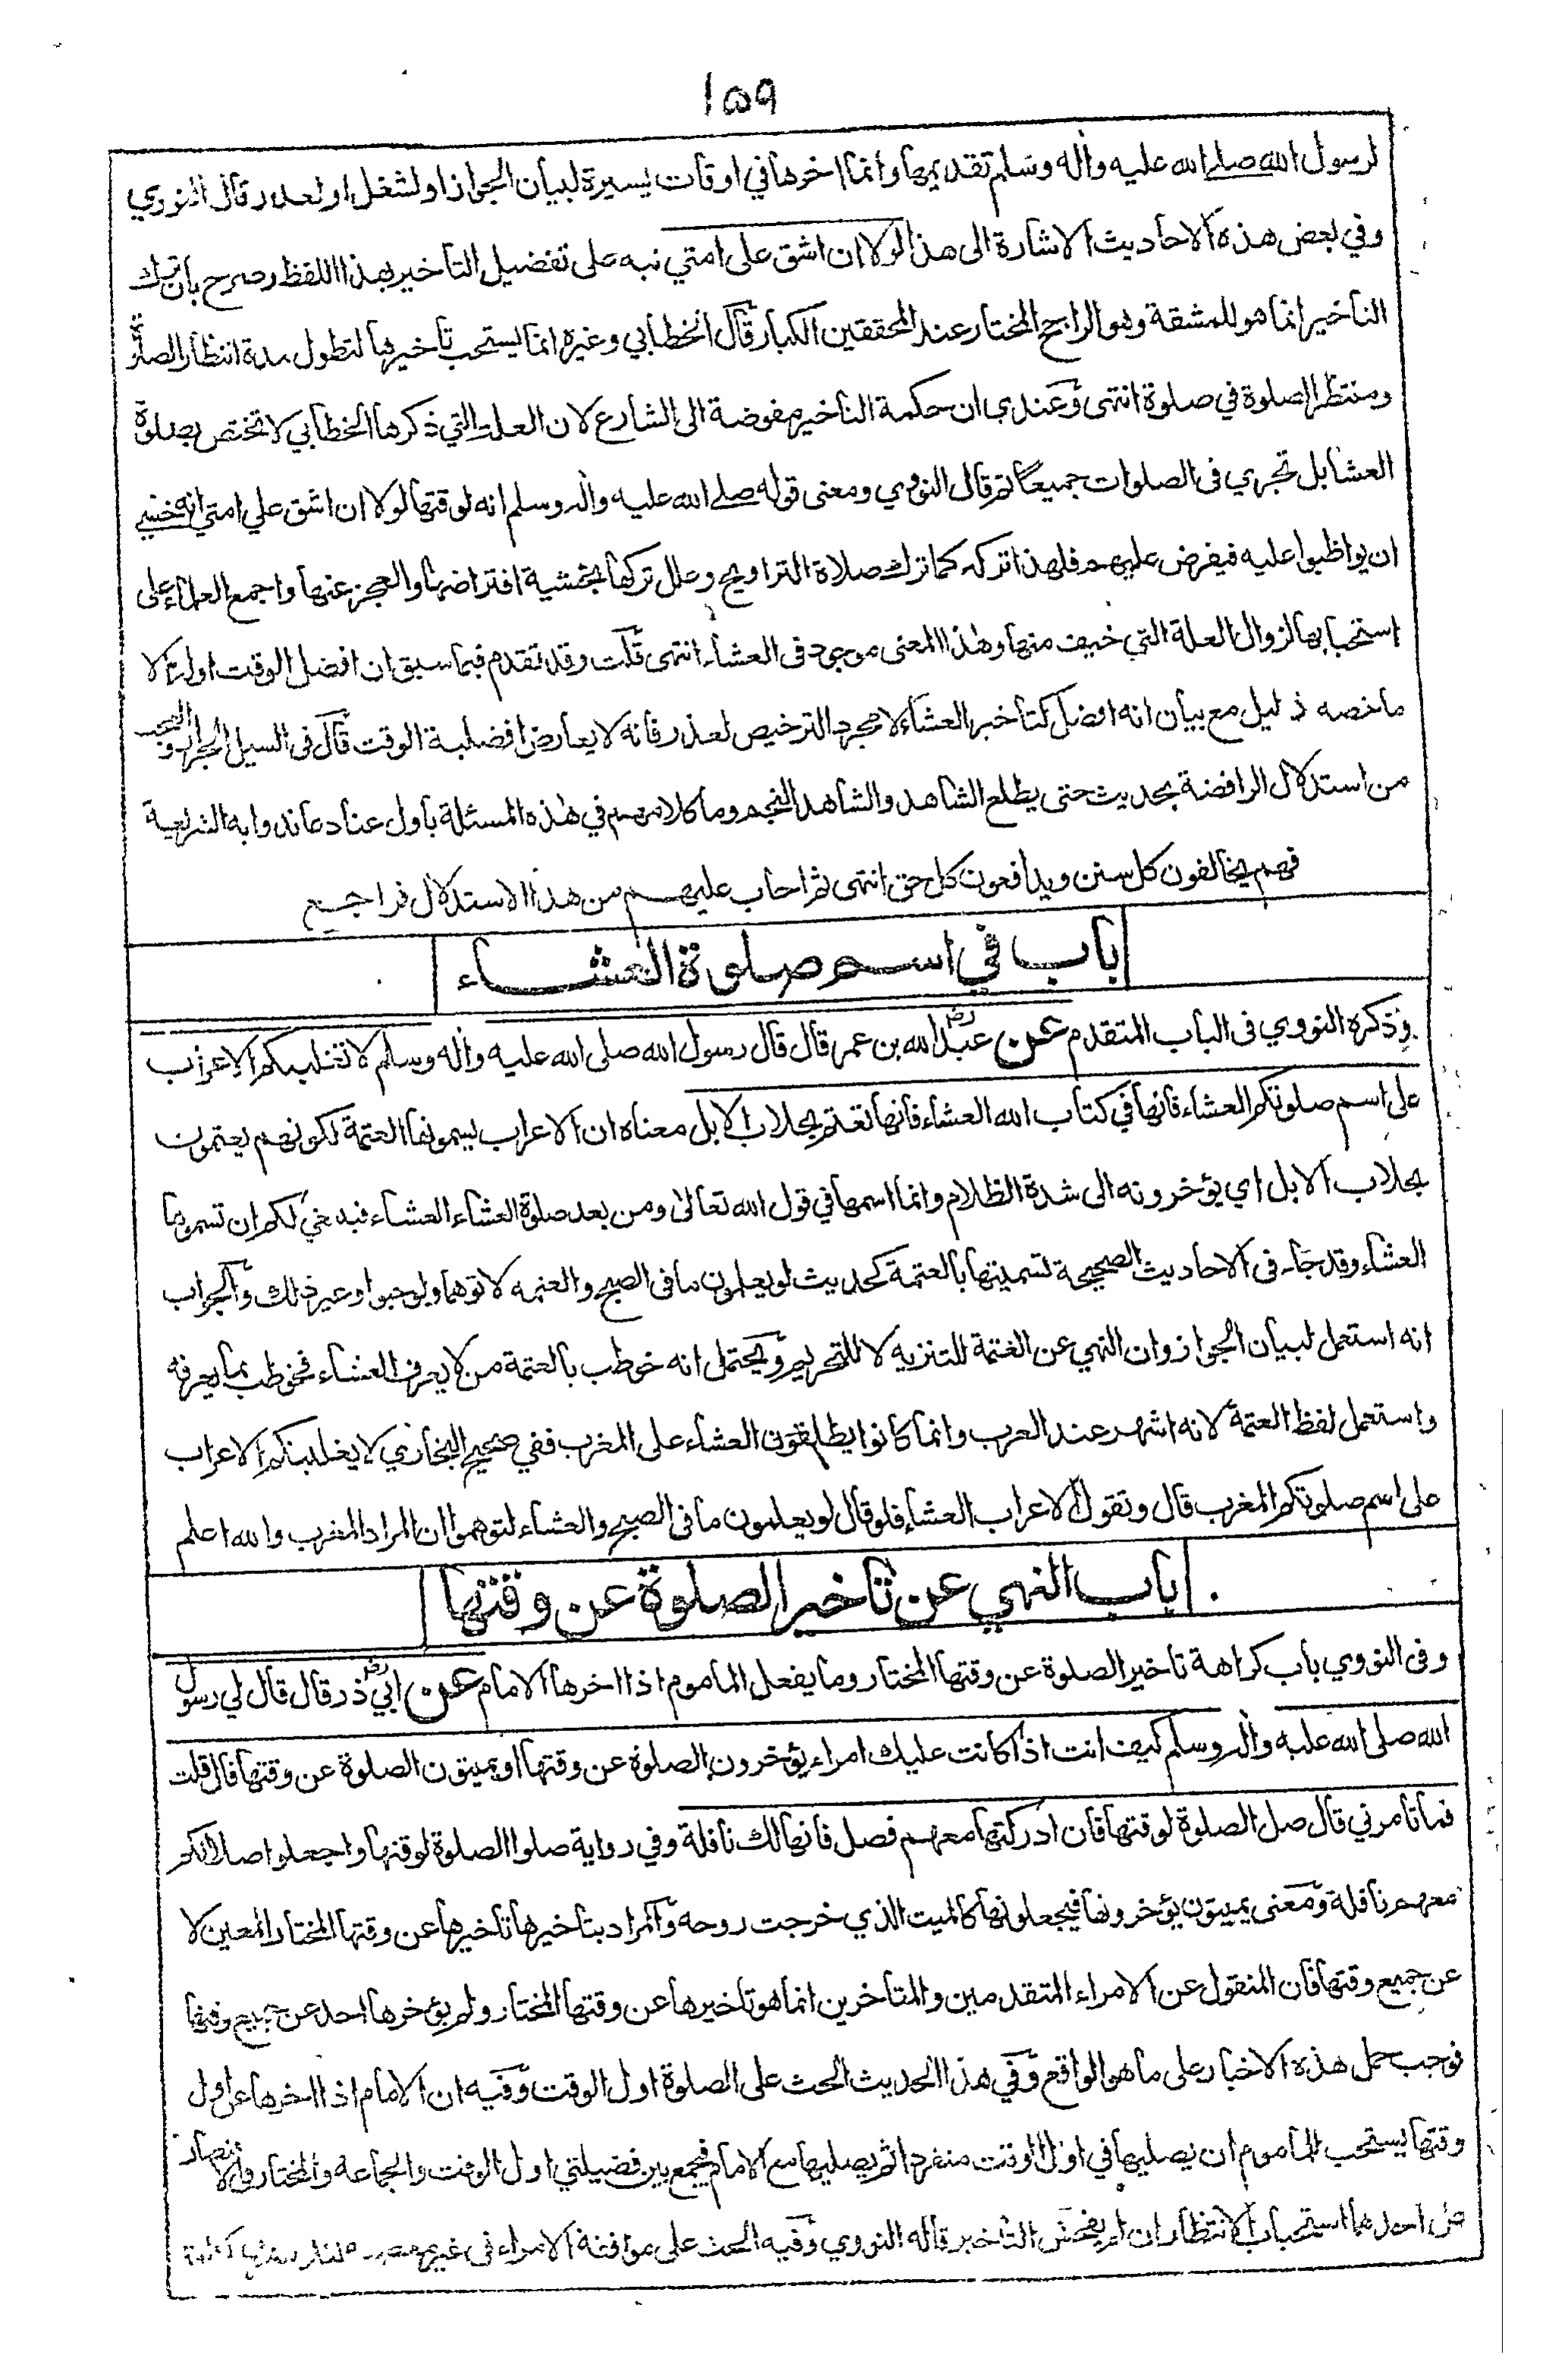 ١٥٩
لرسول الله صلے الله عليه واٰله وسلم تقديمها وانما اخرها في اوقات يسيرة لبيان الجواز اولشغل اولعذر قال النووي
وفي بعض هذه الاحاديث الاشارة الى هذا لولا ان اشق على امتي نبه على تفضيل التاخير بهذا اللفظ وصرح بان ترك
التاخير انما هو للمشقة وهو الراجح المختار عند المحققين الكبار قال الخطابي وغيره انما يستحب تاخيرها لتطول مدة انتظار الصلوة
ومنتظر الصلوة في صلوة انتهى وعندي ان حكمة التاخير مفوضة الى الشارع لان العلة التي ذكرها الخطابي لا تختص بصلوة
العشا بل تجري فى الصلوات جميعا ثم قال النووي ومعنى قوله صلے الله عليه واٰله وسلم انه لوقتها لولا ان اشق علي امتي انه خشي
ان يواظبوا عليه فيفرض عليهم فلهذا تركه كما ترك صلاة التراويح وعلل تركها بخشية افتراضها والعجز عنها واجمع العلماء على
استحبابها لزوال العلة التي خيف منها وهذا المعنى موجود فى العشاء انتهى قلت وقد تقدم فيما سبق ان افضل الوقت اوله الا
ما خصه دليل مع بيان انه افضل كتاخير العشاء لا مجرد الترخيص لعذر فانه لا يعارض افضلية الوقت قال فى السيل الجرار والعجب
من استدلال الرافضة بحديث حتى يطلع الشاهد والشاهد النجم وما كلامهم في هذه المسئلة باول عناد عاندوا به الشريعة
فهم يخالفون كل سنن ويدافعون كل حق انتهى ثم اجاب عليهم من هذا الاستدلال فراجع
باب في اسم صلوة العشاء
وذكره النووي فى الباب المتقدم عن عبد الله بن عمر رض قال قال رسول الله صلى الله عليه واٰله وسلم لا تغلبنكم الاعراب
على اسم صلوتكم العشاء فانها في كتاب الله العشاء فانها تعتم بحلاب الابل معناه ان الاعراب يسمونها العتمة لكونهم يعتمون
بحلاب الابل اي يؤخرونه الى شدة الظلام وانما اسمها في قول الله تعالى ومن بعد صلوة العشاء العشاء فينبغي لكم ان تسموها
العشاء وقد جاء فى الاحاديث الصحيحة تسميتها بالعتمة كحديث لو يعلمون ما فى الصبح والعتمه لاتوهما ولو حبوا وغير ذلك والجواب
انه استعمل لبيان الجواز وان النهي عن العتمة للتنزيه لا للتحريم ويحتمل انه خوطب بالعتمة من لا يعرف العشاء فخوطب بما يعرفه
واستعمل لفظ العتمة لانه اشهر عند العرب وانما كانوا يطلقون العشاء على المغرب ففي صحيح البخاري لا يغلبنكم الاعراب
على اسم صلوتكم المغرب قال وتقول الاعراب العشاء فلو قال لو يعلمون ما فى الصبح والعشاء لتوهموا ان المراد المغرب والله اعلم
باب النهي عن تاخير الصلوة عن وقتها
وفى النووي باب كراهة تاخير الصلوة عن وقتها المختار وما يفعل الماموم اذا اخرها الامام عن ابي ذر رض قال قال لي رسول
الله صلى الله عليه واٰله وسلم كيف انت اذا كانت عليك امراء يؤخرون الصلوة عن وقتها او يميتون الصلوة عن وقتها قال قلت
فما تامرني قال صل الصلوة لوقتها فان ادركتها معهم فصل فانها لك نافلة وفي رواية صلوا الصلوة لوقتها واجعلوا صلاتكم
معهم نافلة ومعنى يميتون يؤخرونها فيجعلونها كالميت الذي خرجت روحه والمراد بتاخيرها تاخيرها عن وقتها المختار المعين لا
عن جميع وقتها فان المنقول عن الامراء المتقدمين والمتاخرين انما هو تاخيرها عن وقتها المختار ولم يؤخرها احد عن جميع وقتها
فوجب حمل هذه الاخبار على ما هو الواقع وفي هذا الحديث الحث على الصلوة اول الوقت وفيه ان الامام اذا اخرها عن اول
وقتها يستحب الماموم ان يصليها في اول الوقت منفردا ثم يصليها مع الامام فيجمع بين فضيلتي اول الوقت والجماعة والمختار في الاقتصار
على احدهما استحباب الانتظار ان لم يفحش التاخير قاله النووي وفيه الحث على موافقة الامراء فى غير معصية